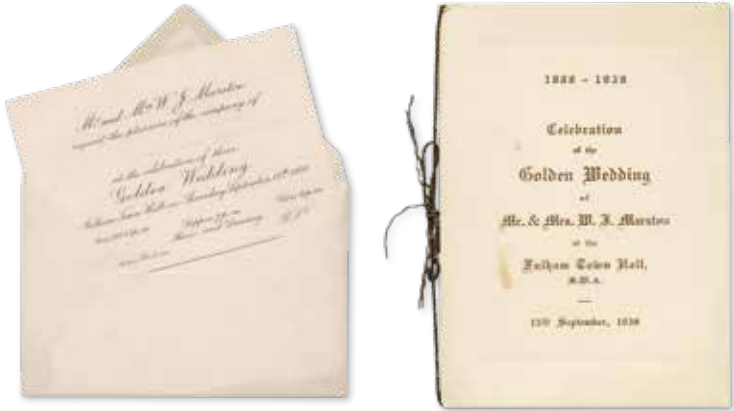 Mr. and Mrs. W. J. Marston
request the pleasure of the company of
at the celebration of their
Golden Wedding
Fulham Town Hall
Dancing
1888 - 1938
Celebration
of the
Golden Wedding
of
Mr. & Mrs. W. J. Marston
at the
Fulham Town Hall,
S.W.6.
September, 1938